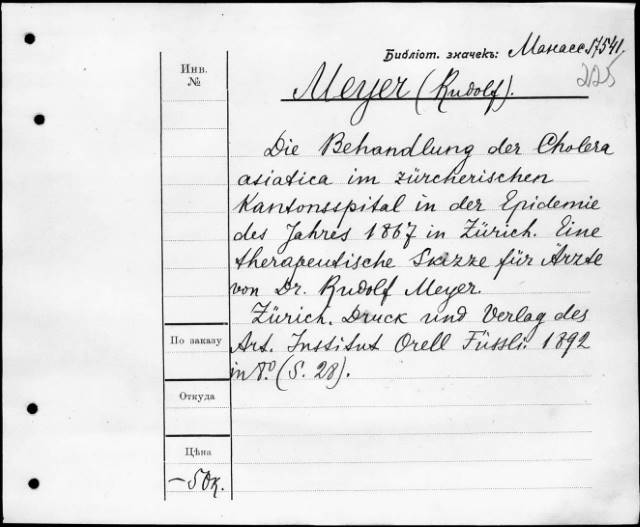 Библіот. значекъ: Манасс. 17541.
225
Инв.
№
Meyer (Rudolf).
Die Behandlung der Cholera
asiatica im zürcherischen
Kantonsspital in der Epidemie
des Jahres 1867 in Zürich. Eine
therapeutische Skizze für Ärzte
von Dr. Rudolf Meyer.
Zürich. Druck und Verlag des
Art. Institut Orell Füssli. 1892
in 8.º (S. 28).
По заказу
Откуда
Цѣна
—50к.